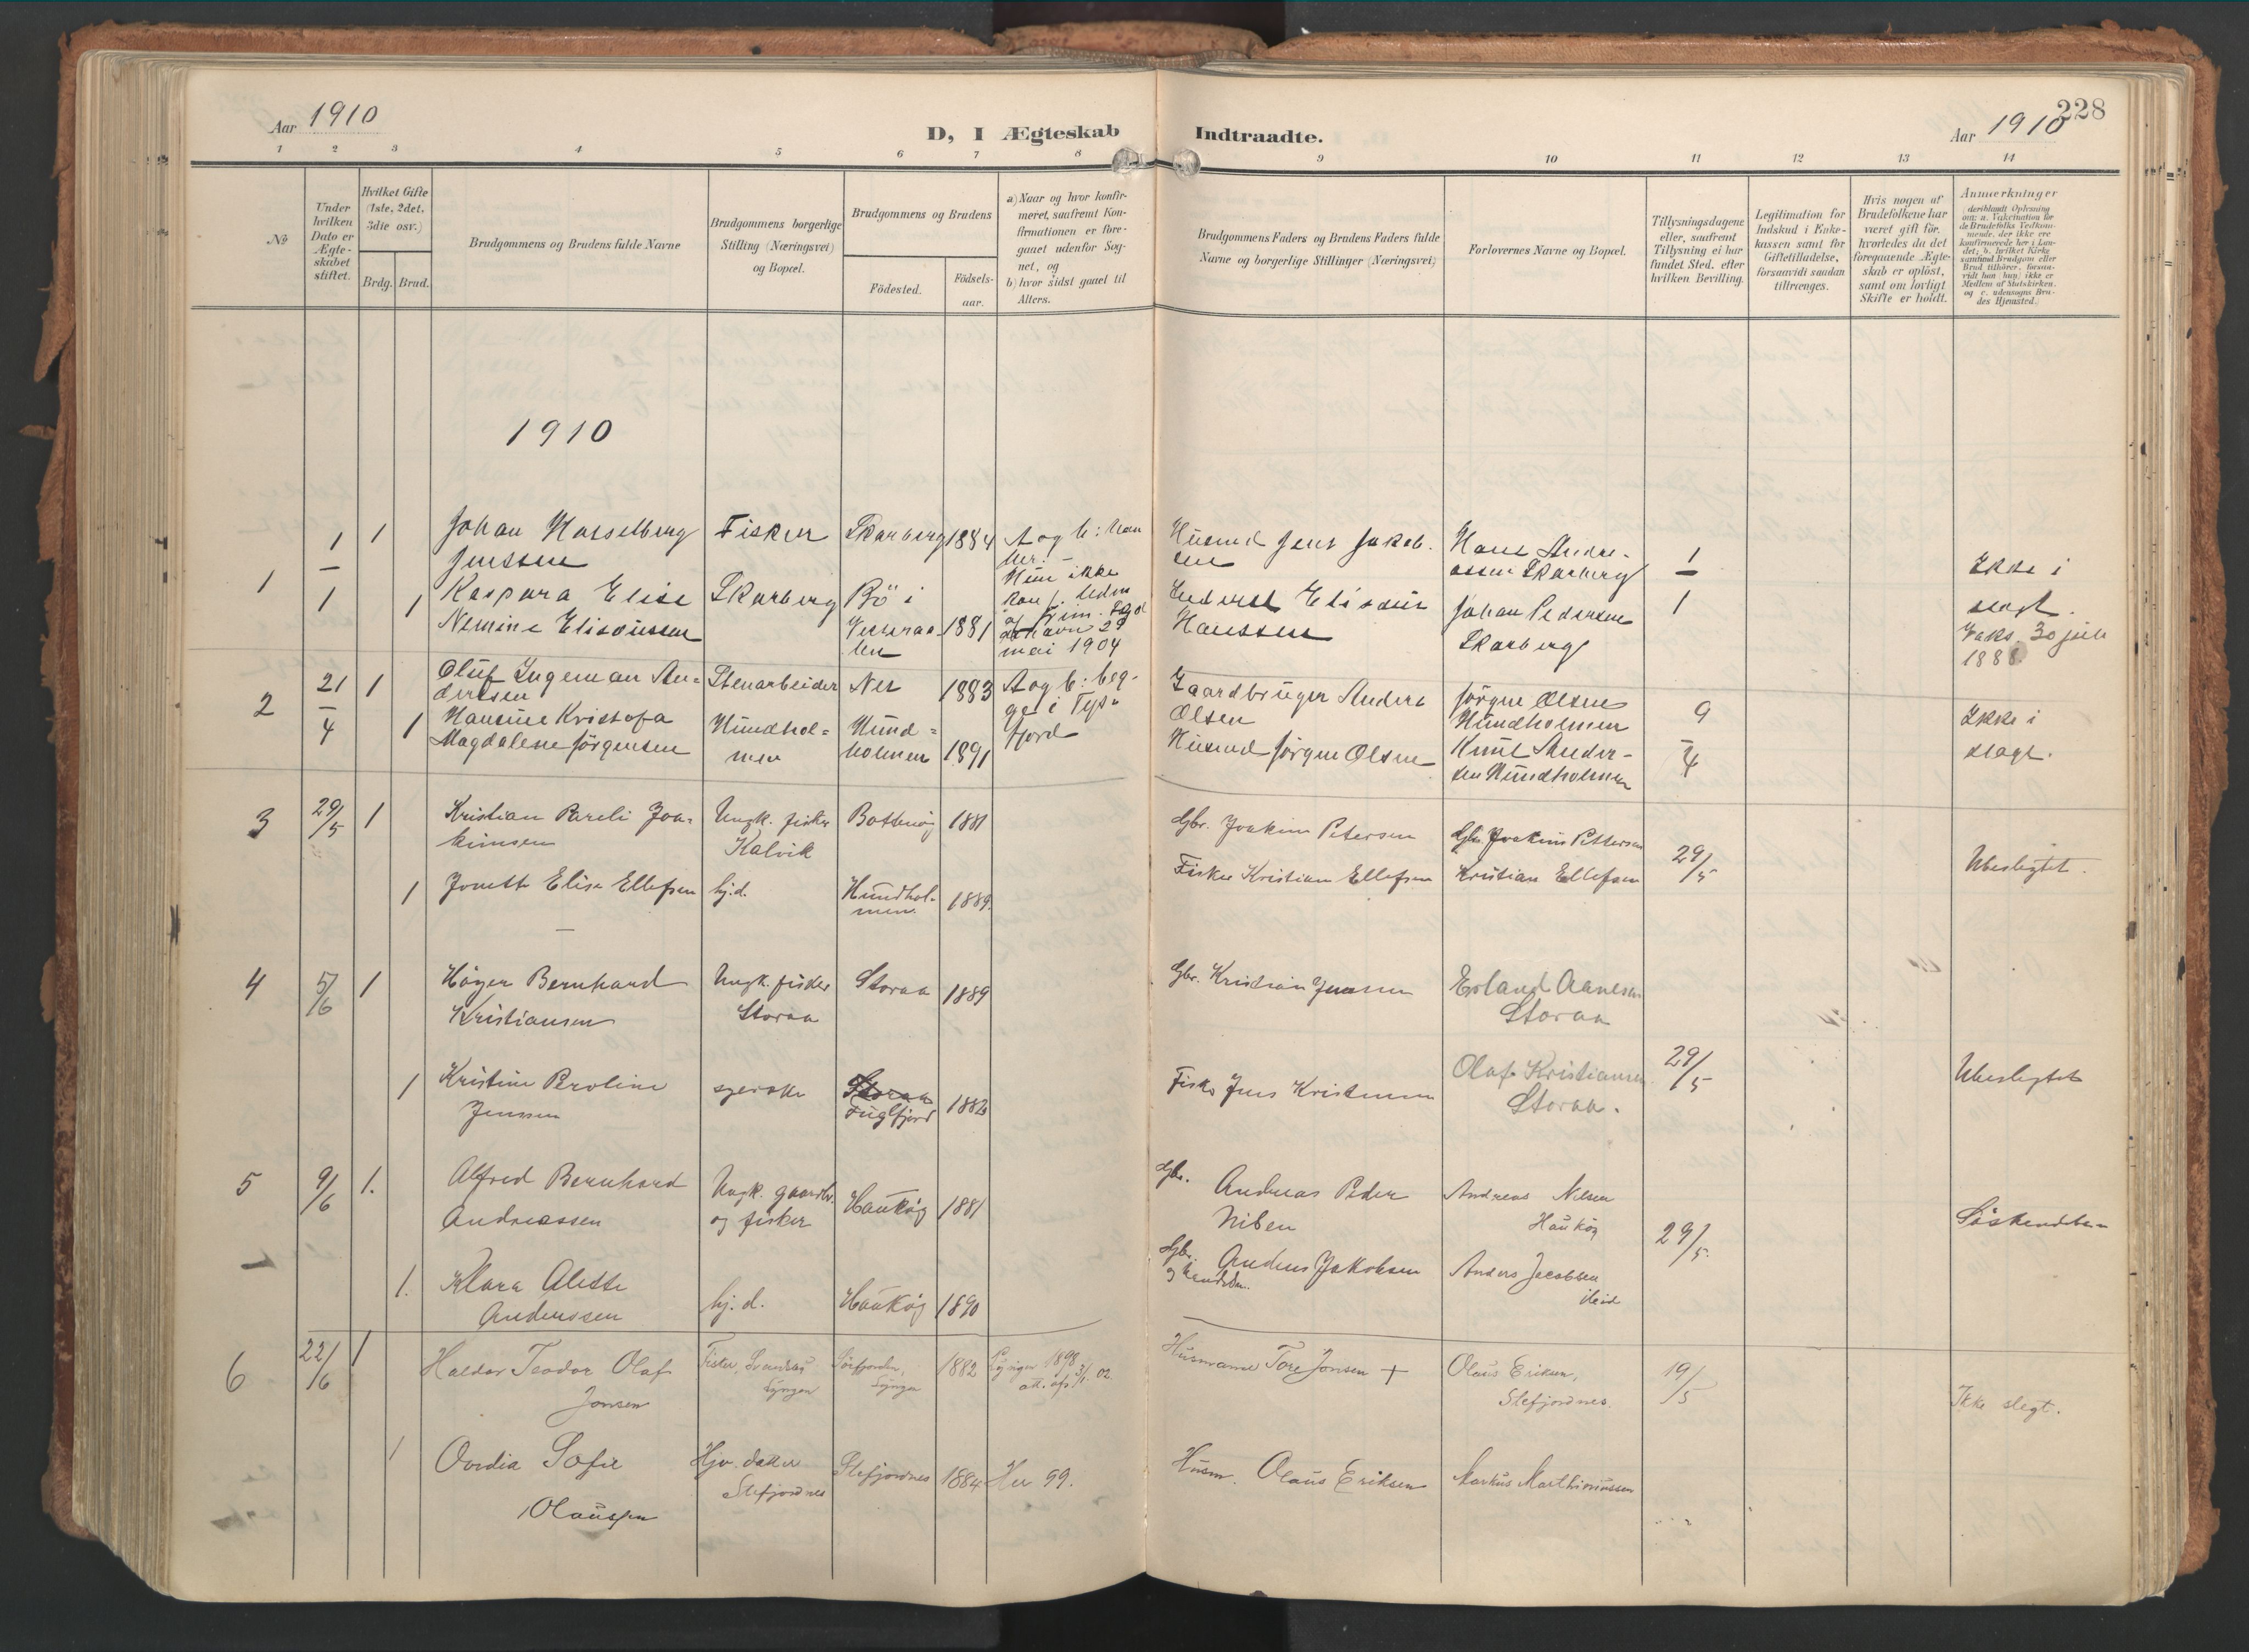 Aar 1910
D, I Ægteskab Indtraadte.
Aar 1910
228
1 2 3 4 5 6 7 8 9 10 11 12 13 14
No
Under hvilken Dato er Ægte-skabet stiftet.
Hvilket Gifte (1ste, 2det, 3die osv.)
Brdg. Brud.
Brudgommens og Brudens fulde Navne
Brudgommens borgerlige Stilling (Næringsvei) og Bopæl.
Brudgommens og Brudens
Födested.
Födsels-aar.
a) Naar og hvor konfir-
meret, saafremt Kon-
firmationen er fore-
gaaet udenfor Sog-
net, og
b) hvor sidst gaaet til
Alters.
Brudgommens Faders og Brudens Faders fulde
Navne og borgerlige Stillinger (Næringsvei)
Forlovernes Navne og Bopæl.
Tillysningsdagene
eller, saafremt
Tillysning ei har
fundet Sted, efter
hvilken Bevilling.
Legitimation for
Indskud i Enke-
kassen samt for
Giftetilladelse,
forsaavidt saadan
tiltrænges.
Hvis nogen af
Brudefolkene har
været gift för,
hvorledes da det
foregaaende Ægte-
skab er oplöst,
samt om lovligt
Skifte er holdt.
Anmærkninger
(deriblandt Oplysning
om: a. Vakcination for
de Brudefolks Vedkom-
mende, der ikke ere
konfirmerede her i Lan-
det; b. hvilket Kirke-
samfund Brudgom eller
Brud tilhörer, forsaa-
vidt han (hun) ikke er
Medlem af Statskirken,
og c. udensogns Bru-
des Hjemsted.)
1910
1
1/1
1
Johan Hasselberg
Jenssen
Fisker
Skarberg
1884
A og b: han
her. –
Husmd Jens Jakob-
sen
Hans Andre-
assen Skarberg
1/1
Ikke i
slegt.
1
Kaspara Elise
Nemine Eliseussen
Skarberg
Bö i
Vesteraa-
len
1881
Hun ikke
mai 1904
Elisæus
Hanssen
Johan Pedersen
Skarberg
Vaks. 30 juli
1888
2
21/4
1
Oluf Ingeman An-
dersen
Stenarbeider
Nes
1883
A og b: beg-
ge i Tys-
fjord
Gaardbruger Anders
Olsen
Jörgen Olsen
Hundholmen
9/4
Ikke i
slægt.
1
Hansine Kristofa
Magdalene Jörgensen
Hundhol-
men
Hund-
holmen
1891
Husmd Jörgen Olsen
Knut Ander-
sen Hundholmen
3
29/5
1
Kristian Pareli Joa-
kimsen
Ungk. fisker
Kalvik
Botnhög
1881
Gbr. Joakim Petersen
Gbr. Joakim Pettersen
29/5
Ubeslegtet.
1
Jonette Elise Ellefsen
hj.d.
Hundhol-
men.
1889.
Fisker Kristian Ellefsen
Kristian Ellefsen
4
5/6
1
Höger Bernhard
Kristiansen
Ungk. fisker
Storaa
Storaa
1889
Gbr. Kristian Jenssen
Erland Aanesen
Storaa
29/5
Ubeslegtet
1
Kristine Peroline
Jenssen
syerske
Storaa
Fuglfjord
Fisker Jens Kristensen
Olaf Kristiansen
Storaa.
5
9/6
1.
Alfred Bernhard
Andreassen
Ungk. gaardbr.
og fisker
Haukög
1881
Gbr. Andreas Peder
Nilsen
Andreas Nilsen
Haukög
29/5
Söskendebarn
1.
Klara Alette
Anderssen
hj. d.
Haukög
1890
Gbr. Anders Jakobsen
og handelsm.
Anders Jacobsen
ibid
6
22/6
1
Haldor Teodor Olaf
Jonsen
Fisker,
Lyngen
Sörfjorden,
Lyngen
1882
Lyngen 1898
att. af 3/1. 02.
Husmand Tore Jonsen +
Olaus Eriksen,
Stefjordnes.
19/5
Ikke slegt.
1
Ovidia Sofie
Olaussen
Hjv. datter
Stefjordnes
Stefjordnes
1884
Her 99.
Husm. Olaus Eriksen
Markus Marthinussen